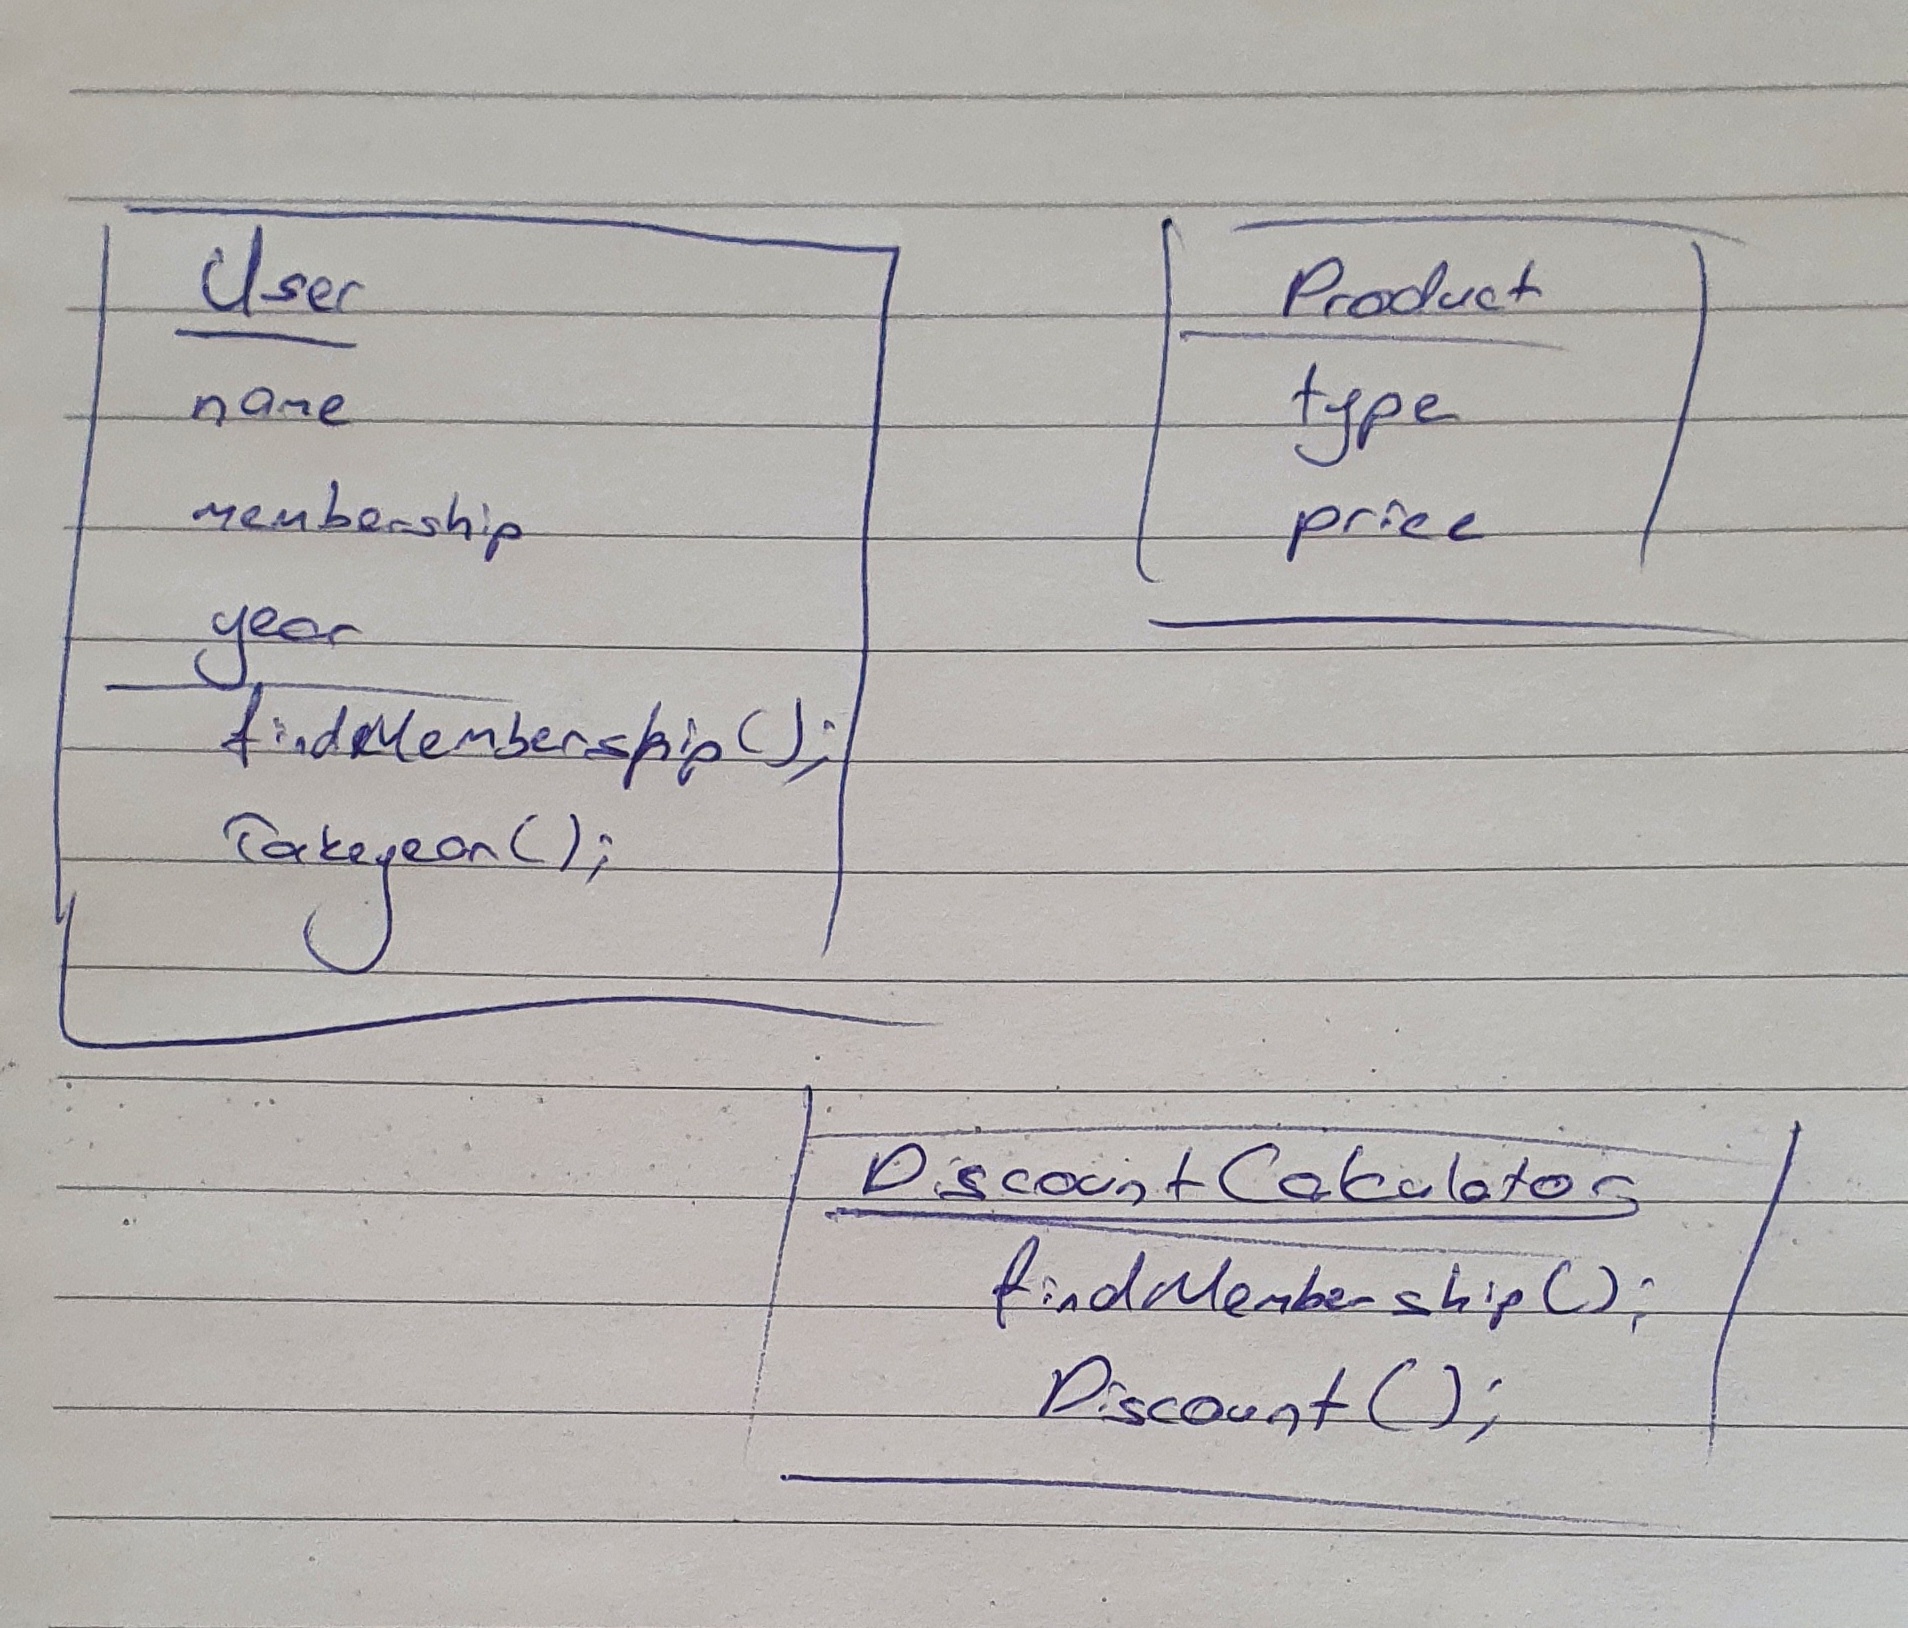 User
name
membership
year
findMembership();
Takeyear();
Product
type
price
DiscountCalculator
findMembership();
Discount();